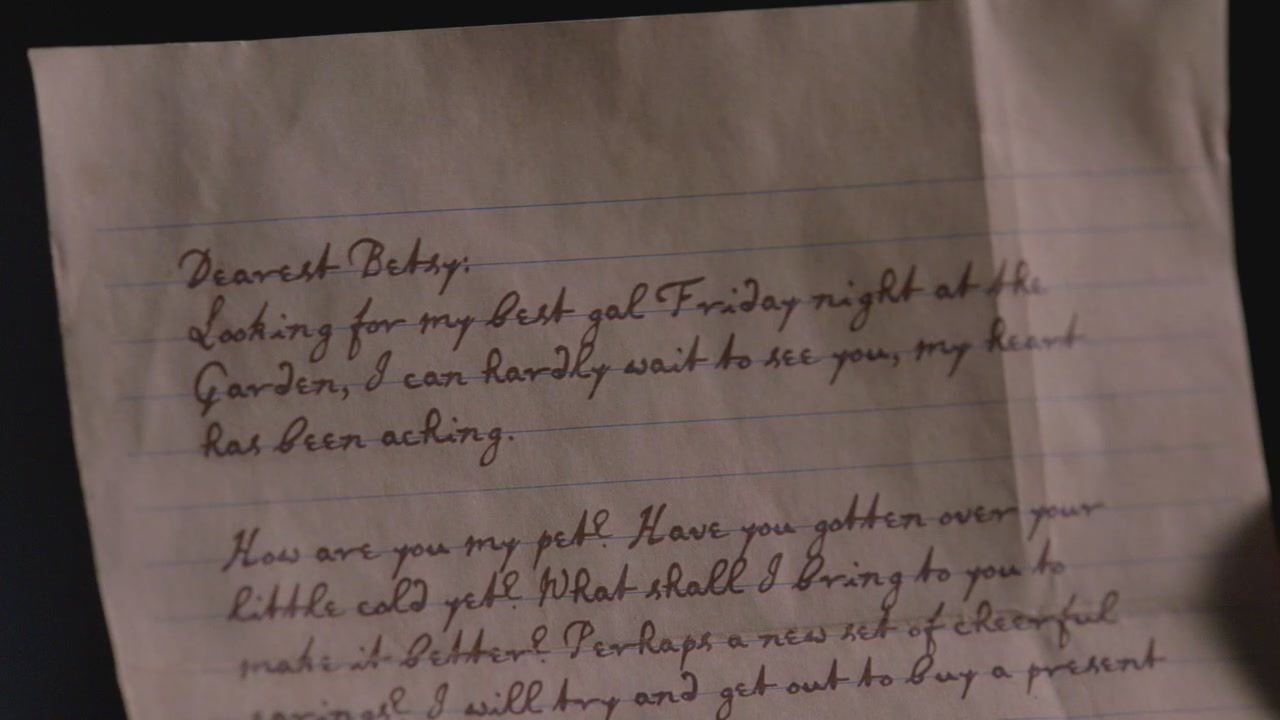 Dearest Betsy:
Looking for my best gal Friday night at the
Garden, I can hardly wait to see you, my heart
has been aching.
How are you my pet? Have you gotten over your
little cold yet? What shall I bring to you to
make it better? Perhaps a new set of cheerful
earings? I will try and get out to buy a present